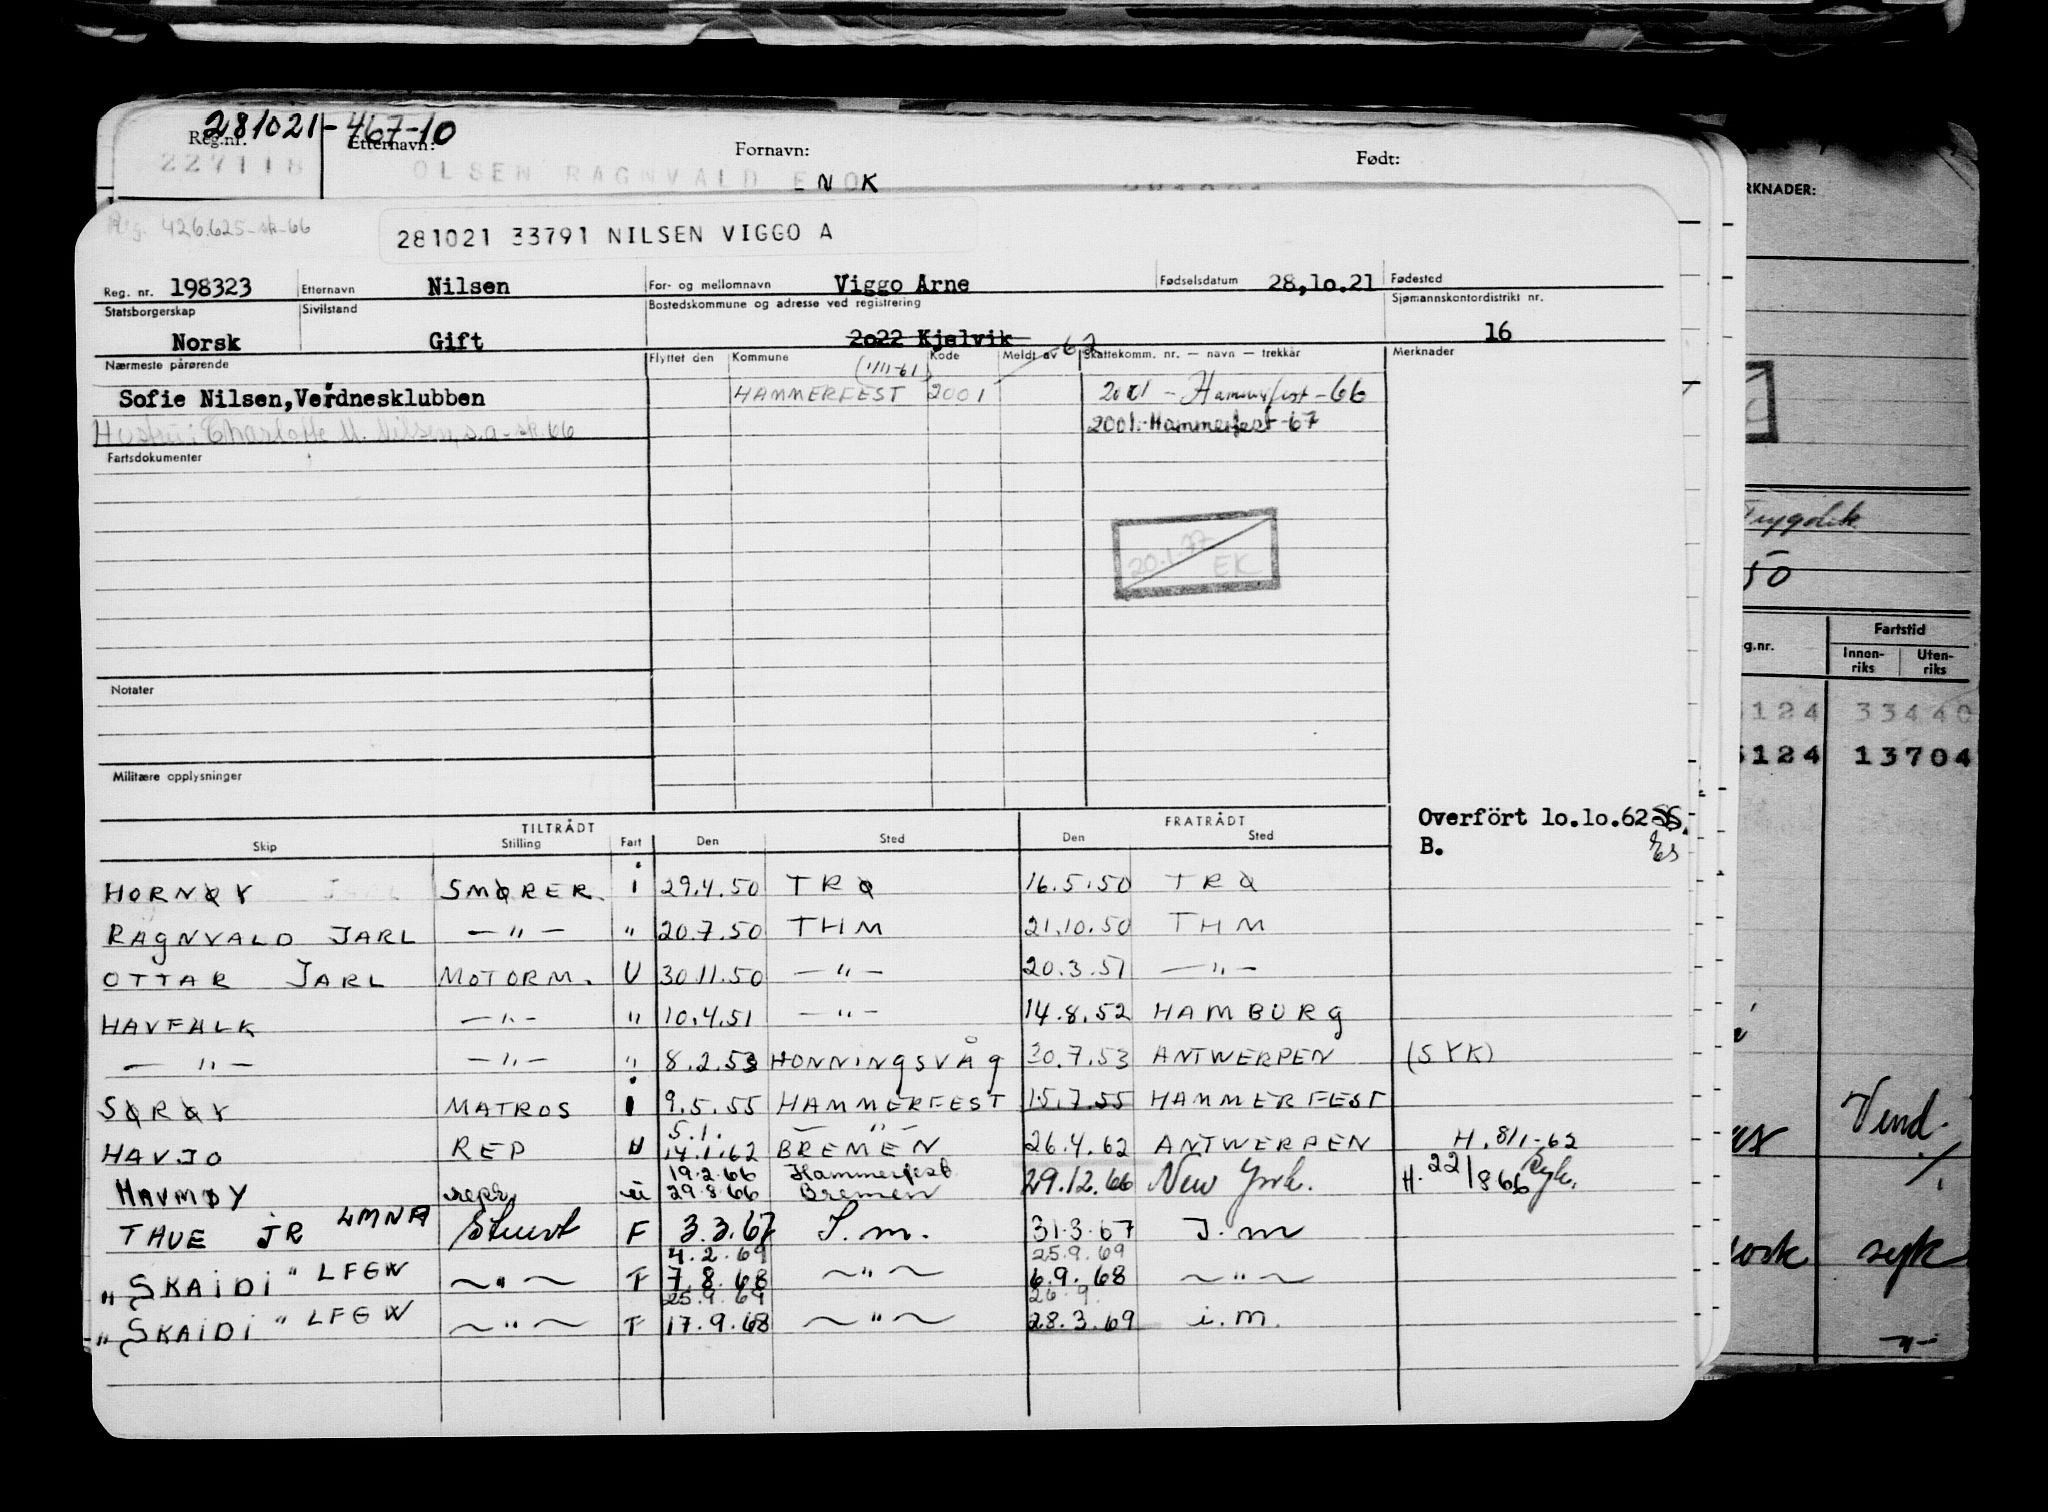 281021-467-10
Reg.nr. Etternavn: Fornavn: Født:
227118 OLSEN RAGNVALD ENOK
Reg. 426.625-sk-66
281021 33791 NILSEN VIGGO A
Reg. nr. 198323 Etternavn Nilsen For- og mellomnavn Viggo Arne Fødselsdatum 28,10.21 Fødested
Statsborgerskap Sivilstand Bostedskommune og adresse ved registrering Sjømannskontordistrikt nr.
Norsk Gift 2022 Kjelvik 16
Nærmeste pårørende Flyttet den Kommune Kode Meldt av 62 Skattekomm. nr. — navn — trekkår Merknader
(1/11-61)
Sofie Nilsen, Verdnesklubben HAMMERFEST 2001 2001 - Hammerfest - 66
Hustru: Charlotte M. Nilsen, s.a. sk. 66 2001.-Hammerfest-67
Fartsdokumenter
20.1.77 EK
Notater
Militære opplysninger
Overfört 10.10.62
B.
TILTRÅDT FRATRÅDT
Skip Stilling Fart Den Sted Den Sted
HORNØY SMØRER i 29.4.50 TRØ 16.5.50 TRØ
RAGNVALD JARL — " — " 20.7.50 THM 21.10.50 THM
OTTAR JARL MOTORM. U 30.11.50 — " — 20.3.51 — " —
HAVFALK — " — " 10.4.51 — " — 14.8.52 HAMBURG
— " — — " — " 8.2.53 HONNINGSVÅG 30.7.53 ANTWERPEN (SYK)
SØRØY MATROS i 9.5.55 HAMMERFEST 15.7.55 HAMMERFEST
5.1. — " —
HAVJO REP U 14.1.62 BREMEN 26.4.62 ANTWERPEN H. 8/1-62
19.2.66 Hammerfest
HAVMØY repr. u 29.8.66 Bremen 29.12.66 New York. H. 22/8 66
THUE JR LMNA Stuert F 3.3.67 I.m. 31.3.67 I.m
4.2.69 25.9.69
"SKAIDI" LFGW — " — F 7.8.68 — " — 6.9.68 — " —
25.9.69 26.9.
"SKAIDI" LFGW — " — F 17.9.68 — " — 28.3.69 i.m.
RKNADER:
Trygdek
50
g.nr. Fartstid
Innen-riks Uten-riks
5124 33440
5124 13704
Vend.
syk